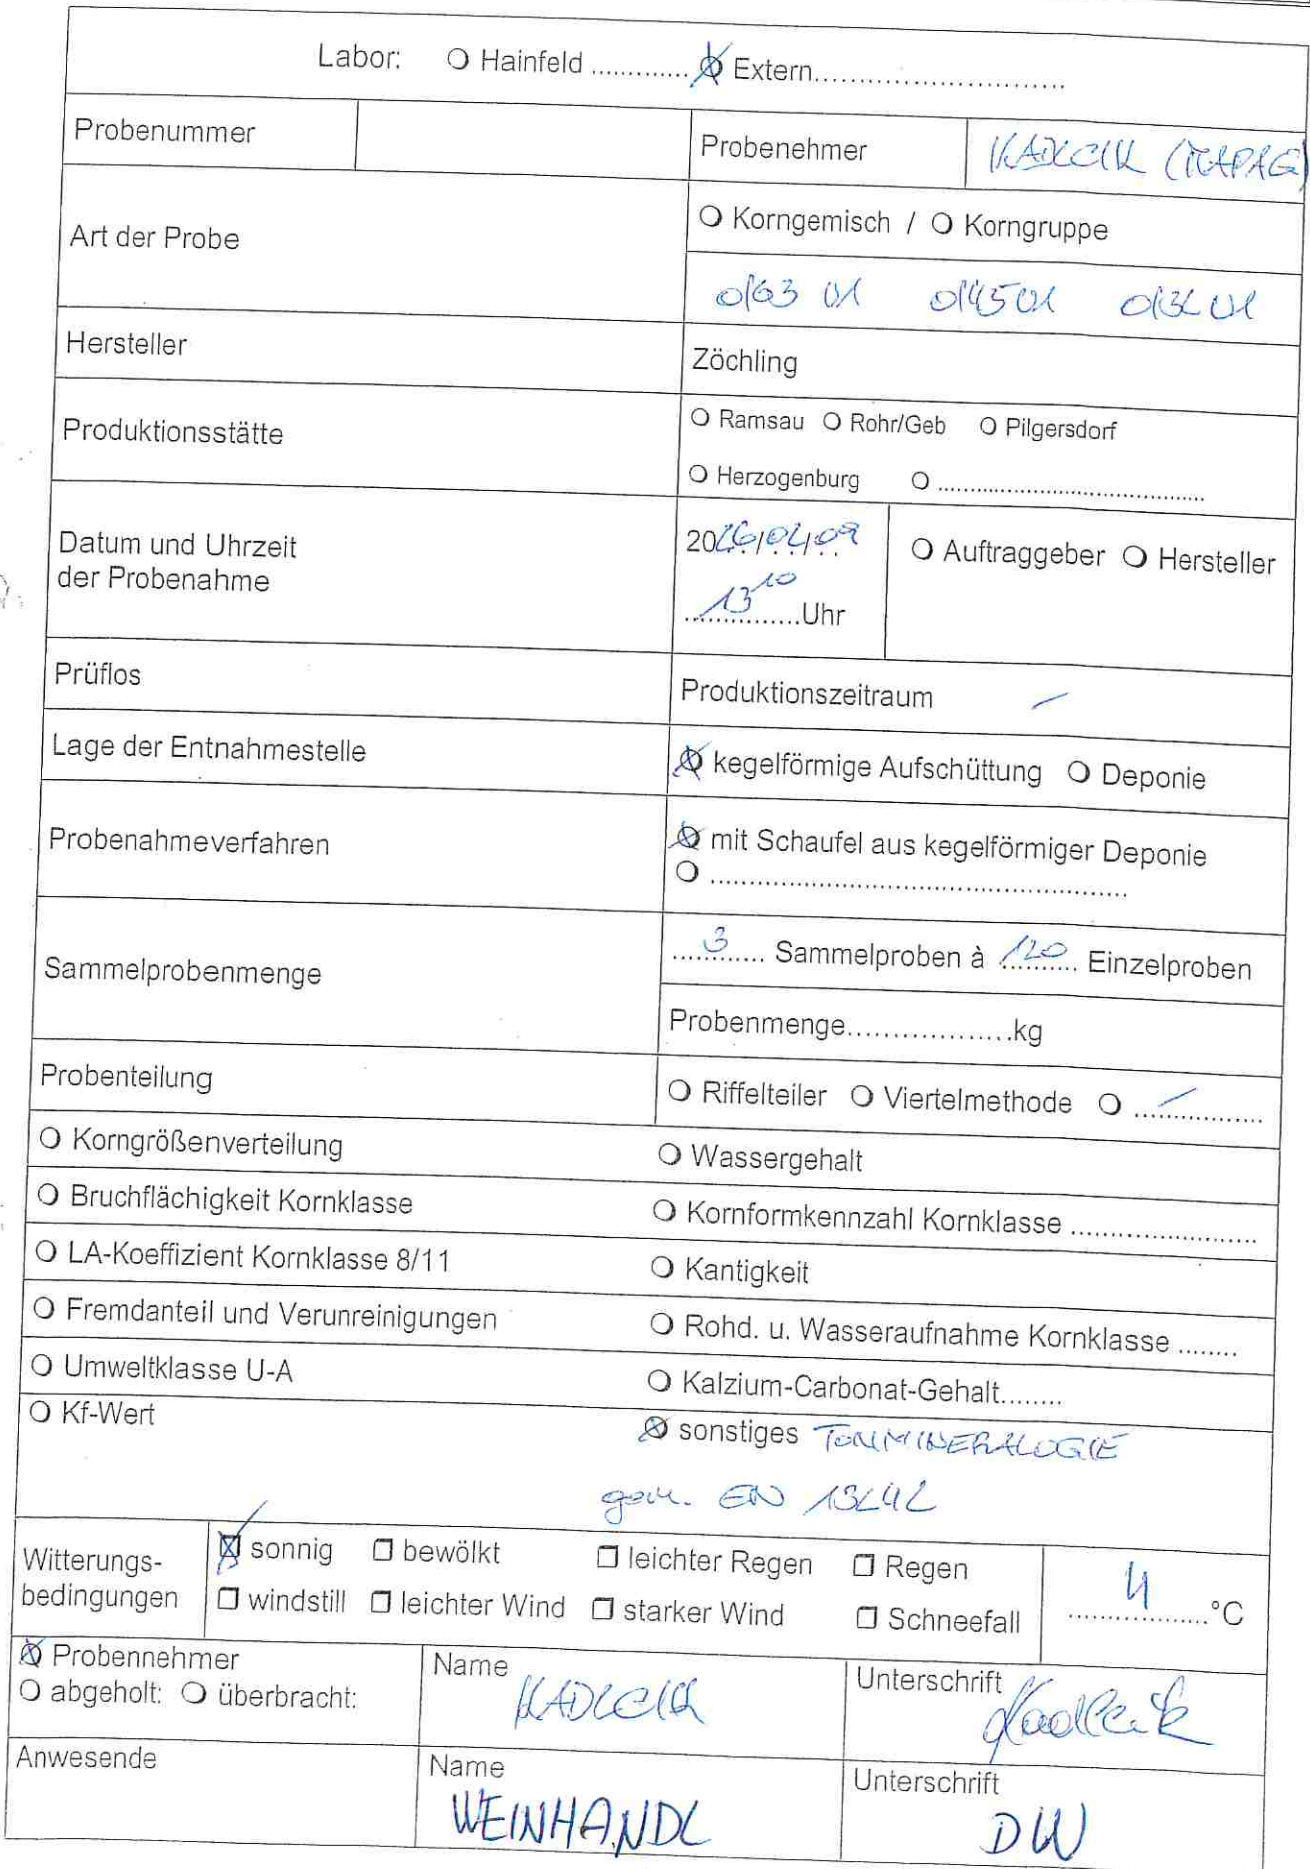 Labor: O Hainfeld ............. O Extern............................
Probenummer Probenehmer KADLCIK (MAPAG)
Art der Probe
O Korngemisch / O Korngruppe
0/63 U1 0/45 U1 0/32 U1
Hersteller Zöchling
Produktionsstätte
O Ramsau O Rohr/Geb O Pilgersdorf
O Herzogenburg O ............................................
Datum und Uhrzeit
der Probenahme
O Auftraggeber O Hersteller
13 10 Uhr
Prüflos Produktionszeitraum –
Lage der Entnahmestelle kegelförmige Aufschüttung O Deponie
Probenahmeverfahren mit Schaufel aus kegelförmiger Deponie
O ......................................................
Sammelprobenmenge
3 Sammelproben à 120 Einzelproben
Probenmenge..................kg
Probenteilung O Riffelteiler O Viertelmethode O ................
O Korngrößenverteilung O Wassergehalt
O Bruchflächigkeit Kornklasse O Kornformkennzahl Kornklasse ........................
O LA-Koeffizient Kornklasse 8/11 O Kantigkeit
O Fremdanteil und Verunreinigungen O Rohd. u. Wasseraufnahme Kornklasse ........
O Umweltklasse U-A O Kalzium-Carbonat-Gehalt........
O Kf-Wert sonstiges TONMINERALOGIE
gem. EN 13242
Witterungs-
bedingungen
sonnig bewölkt leichter Regen Regen
windstill leichter Wind starker Wind Schneefall
4 °C
Probennehmer
O abgeholt: O überbracht:
Name
KADLCIK
Unterschrift
Kadlcik
Anwesende
Name
WEINHANDL
Unterschrift
DW